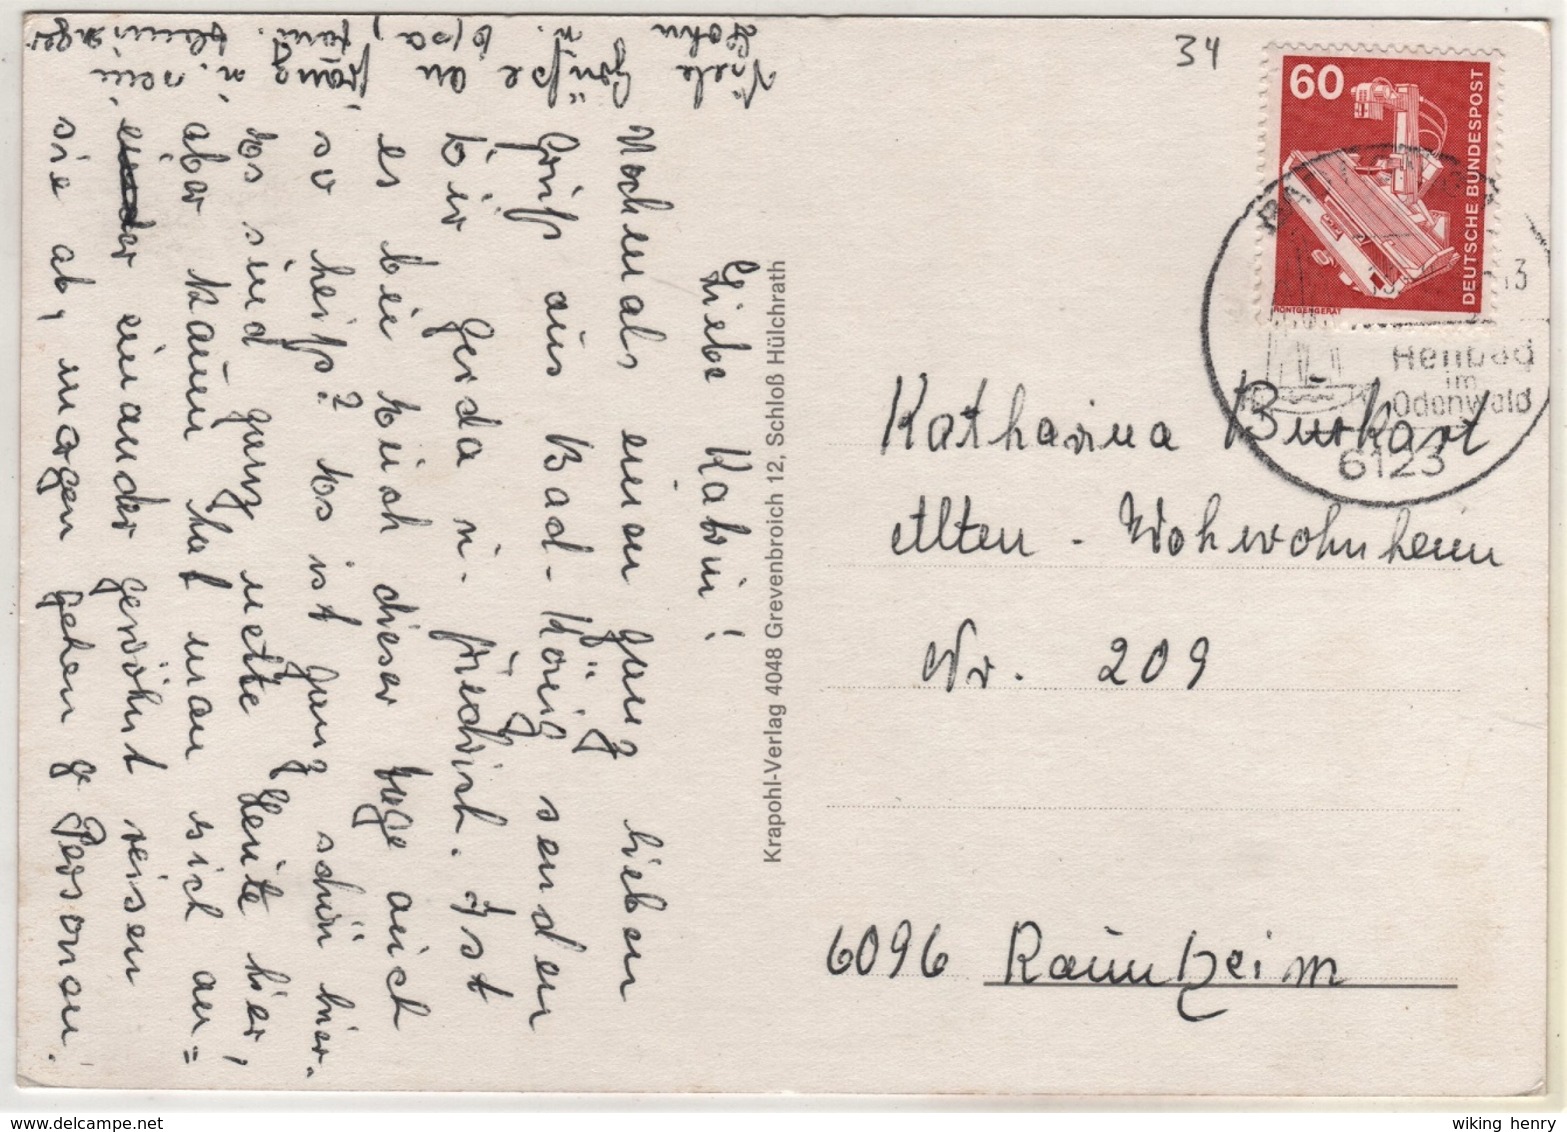 Liebe Katrin!
Nochmals einen ganz lieben
Gruß aus Bad-König senden
Dir Gerda u. Friedrich. Ist
es bei Euch dieser Tage auch
so heiß? Es ist ganz schön hier.
Es sind ganz nette Leute hier,
aber kaum hat man sich an=
einander gewöhnt reisen
sie ab, morgen gehen 9 Personen.
Viele Grüße an Franz u. sein
Sohn u. Elsa, Fam.
34
60
DEUTSCHE BUNDESPOST
RÖNTGENGERÄT
Heilbad
im
Odenwald
6123
Katharina Burkart
Alten - Wohnwohnheim
Nr. 209
6096 Raunheim
Krapohl-Verlag 4048 Grevenbroich 12, Schloß Hülchrath
wiking henry